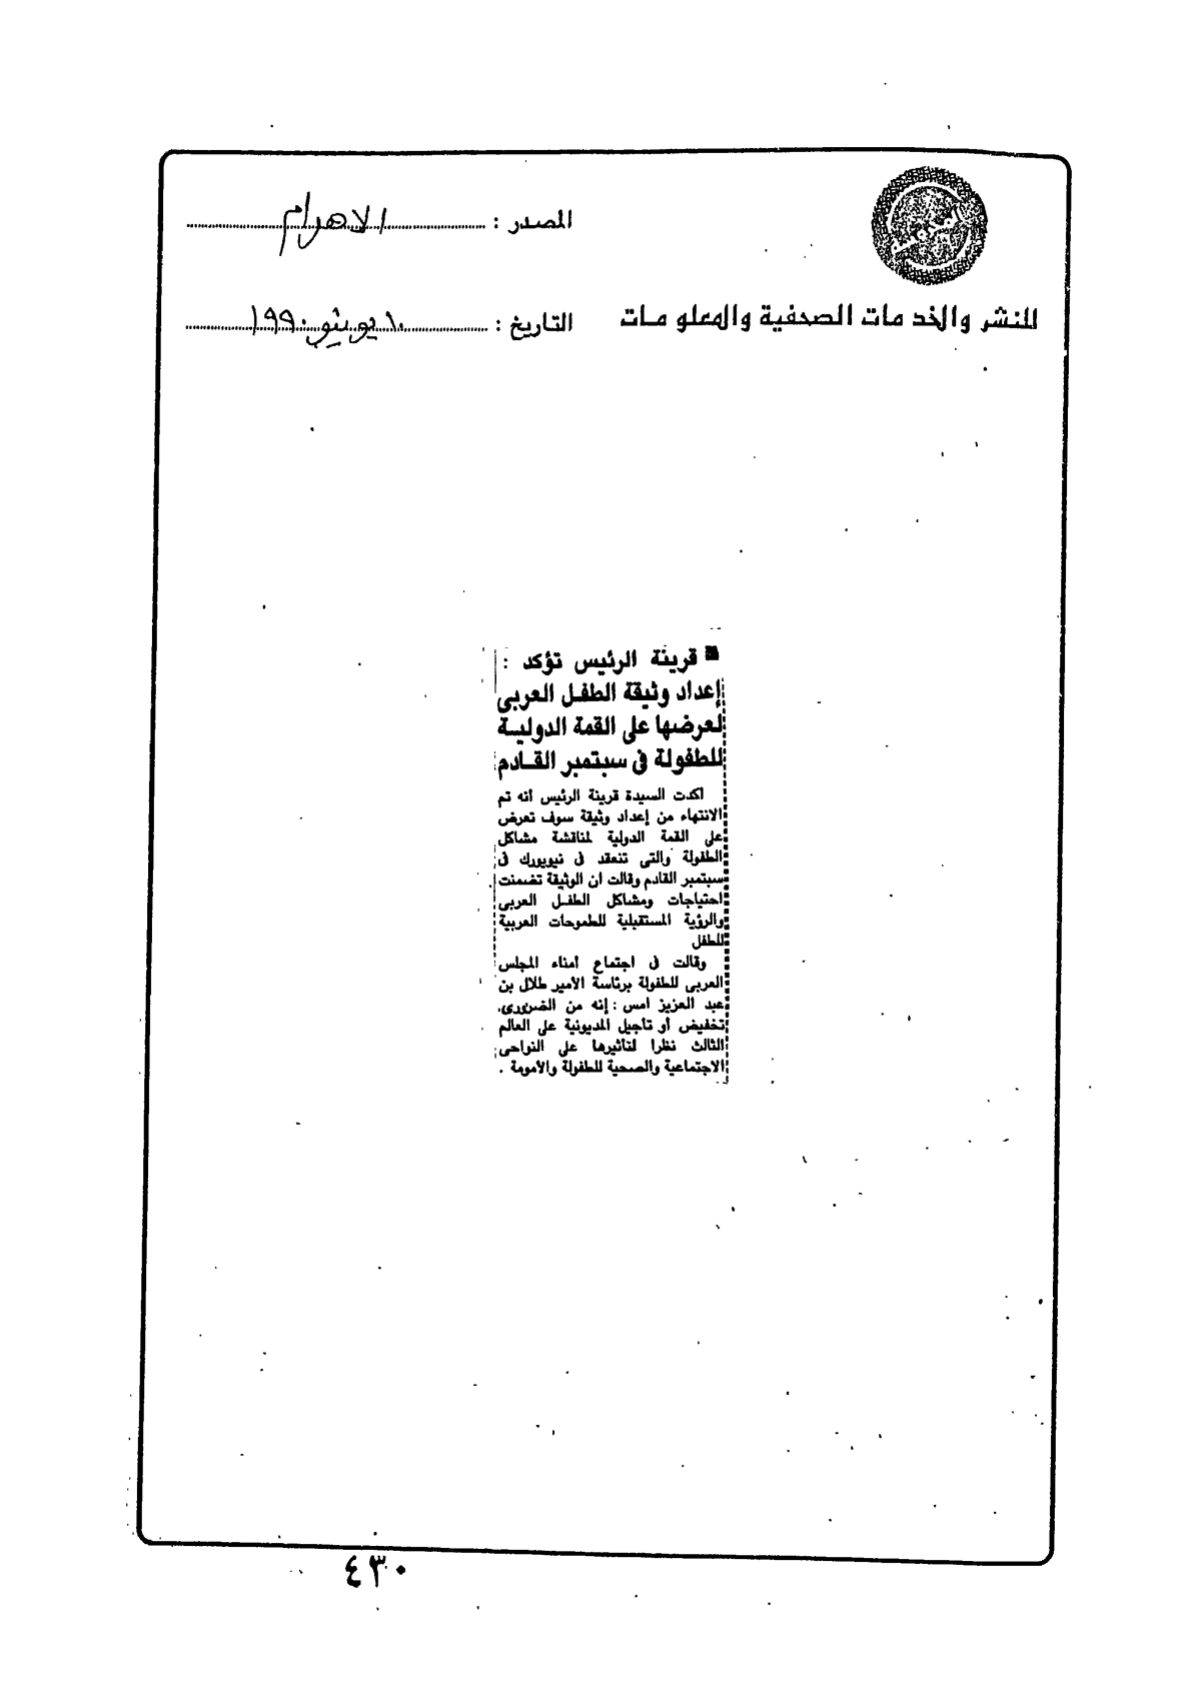 المصدر : الاهرام
للنشر والخدمات الصحفية والمعلومات
التاريخ : ١٠ يونيو ١٩٩٠
■ قرينة الرئيس تؤكد :
إعداد وثيقة الطفل العربى
لعرضها على القمة الدولية
للطفولة فى سبتمبر القادم
اكدت السيدة قرينة الرئيس انه تم
الانتهاء من إعداد وثيقة سوف تعرض
على القمة الدولية لمناقشة مشاكل
الطفولة والتى تنعقد فى نيويورك فى
سبتمبر القادم وقالت ان الوثيقة تضمنت
احتياجات ومشاكل الطفل العربى
والرؤية المستقبلية للطموحات العربية
للطفل
وقالت فى اجتماع امناء المجلس
العربى للطفولة برئاسة الأمير طلال بن
عبد العزيز امس : إنه من الضرورى
تخفيض أو تأجيل المديونية على العالم
الثالث نظرا لتأثيرها على النواحى
الاجتماعية والصحية للطفولة والأمومة .
٤٣٠